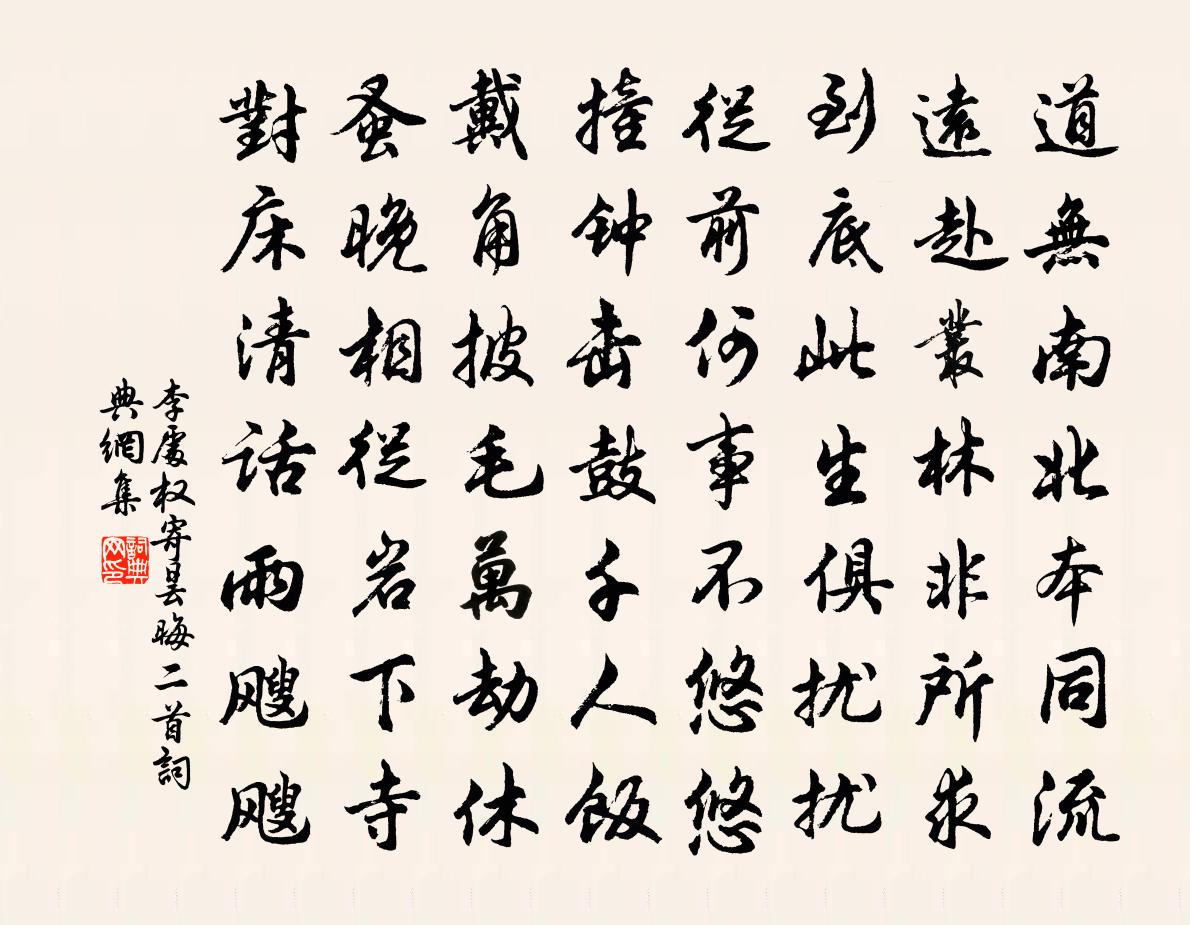 道無南北本同流
遠赴叢林非所求
到底此生俱扰扰
從前何事不悠悠
撞钟击鼓千人飯
戴角披毛萬劫休
蚤晚相從岩下寺
對床清话雨飕飕
李處权寄昙晦二首詞
典網集
詞典
网印